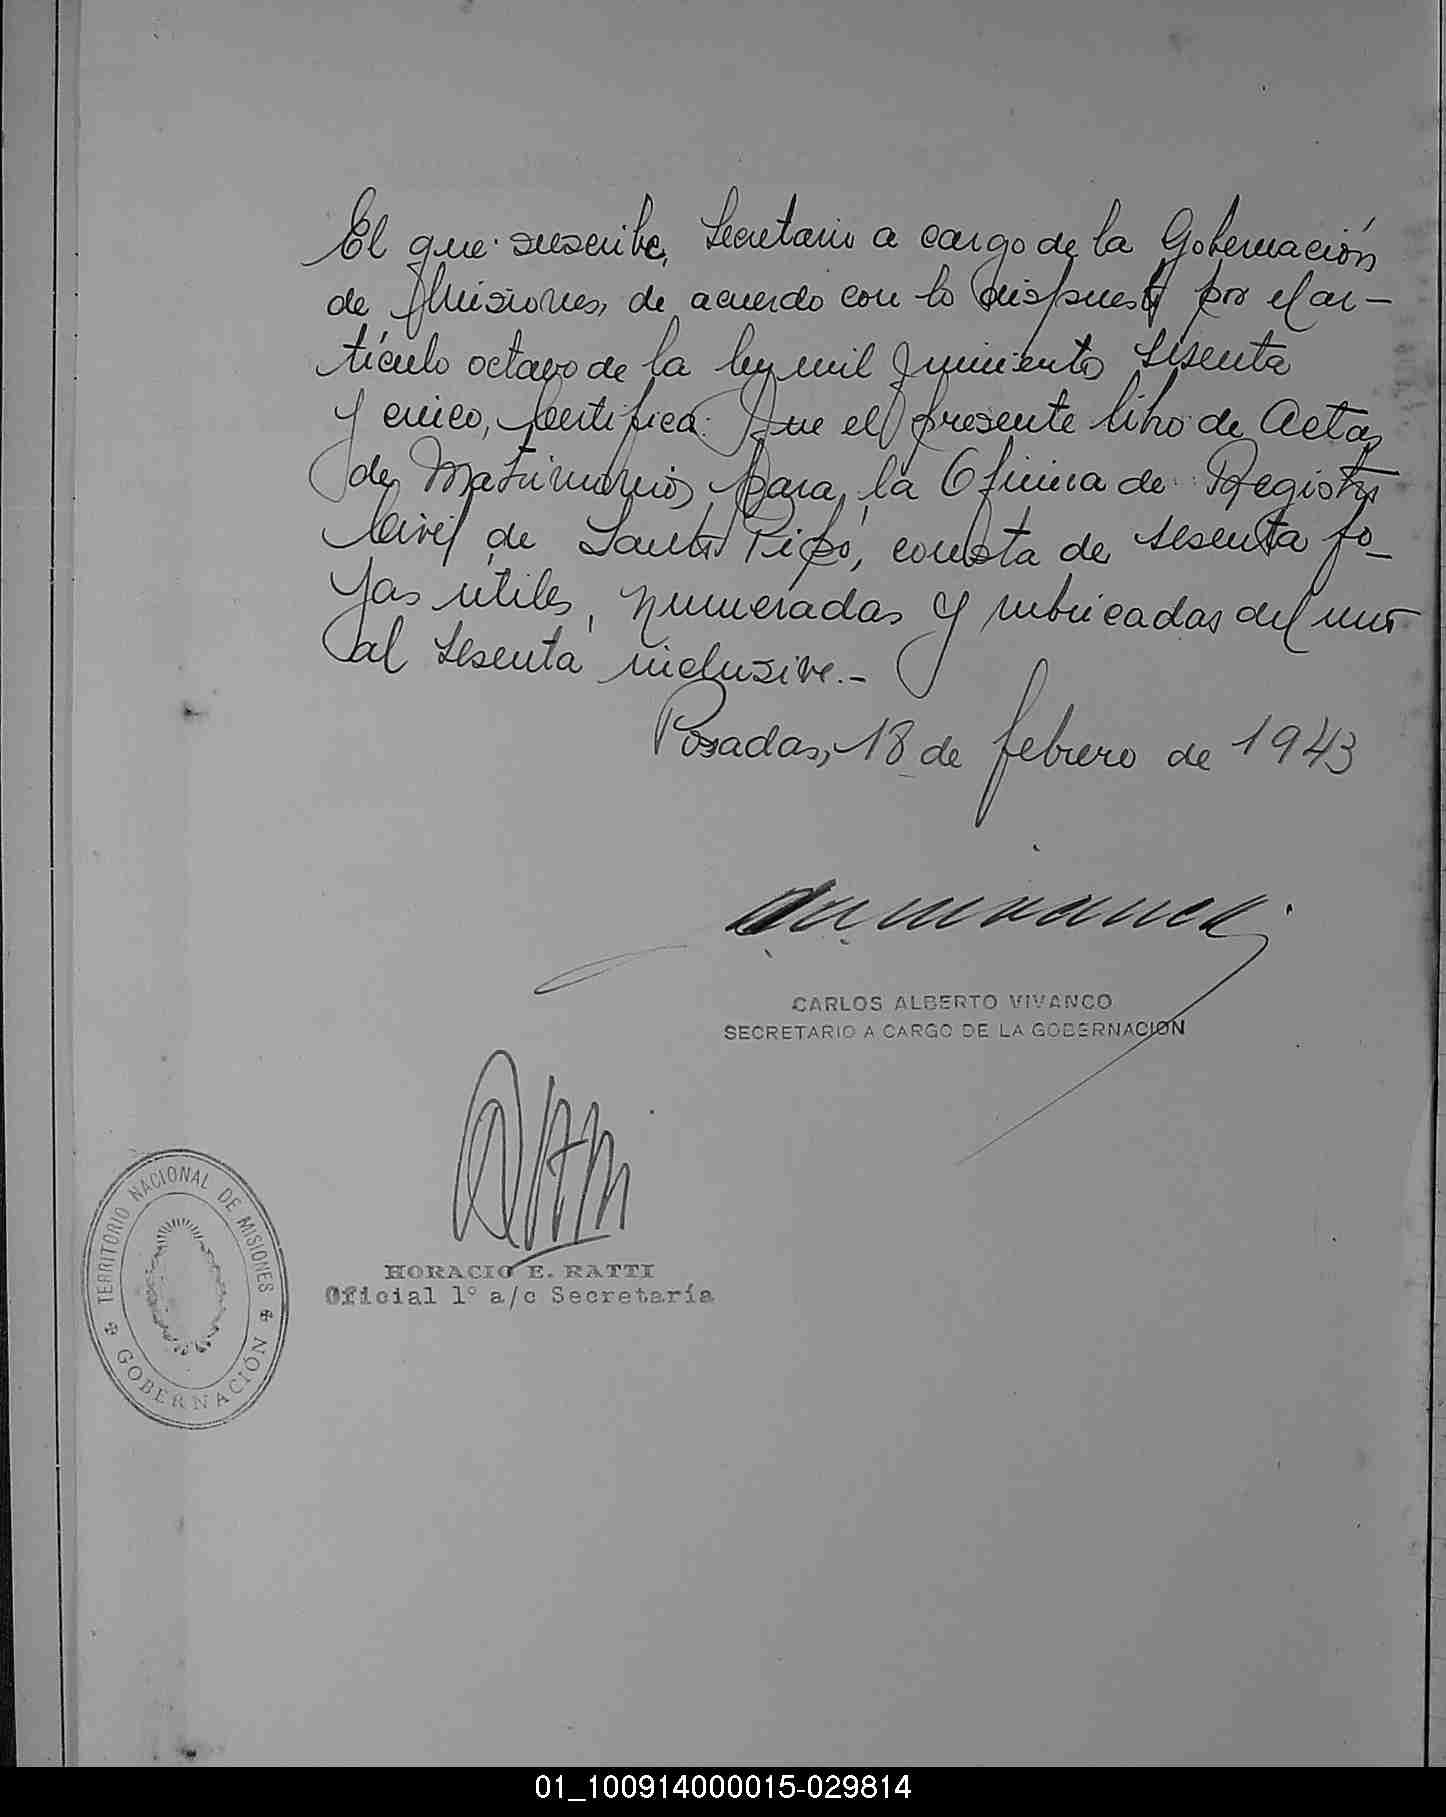 El que suscribe, Secretario a cargo de la Gobernación
de Misiones, de acuerdo con lo dispuesto por el ar-
tículo octavo de la ley mil quinientos sesenta
y cinco, Certifica: Que el presente libro de Actas
de Matrimonios para la Oficina de Registro
Civil de Santo Pipó, consta de sesenta fo-
jas útiles, numeradas y rubricadas del uno
al sesenta inclusive.-
Posadas, 18 de febrero de 1943
CARLOS ALBERTO VIVANCO
SECRETARIO A CARGO DE LA GOBERNACION
Ratti
HORACIO E. RATTI
Oficial 1° a/c Secretaría
TERRITORIO NACIONAL DE MISIONES
GOBERNACIÓN
01_100914000015-029814